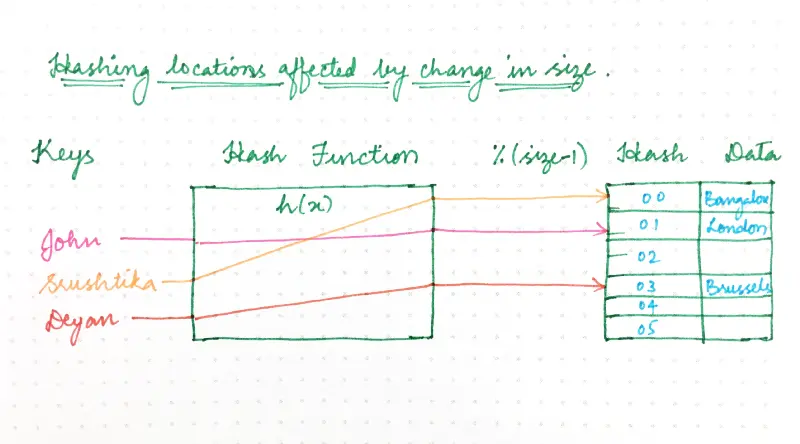 Hashing locations affected by change in size.
Keys Hash Function %(size-1) Hash Data
h(x)
00 Bangalore
01 London
John
02
Srushtika
03 Brussels
04
Deyan
05